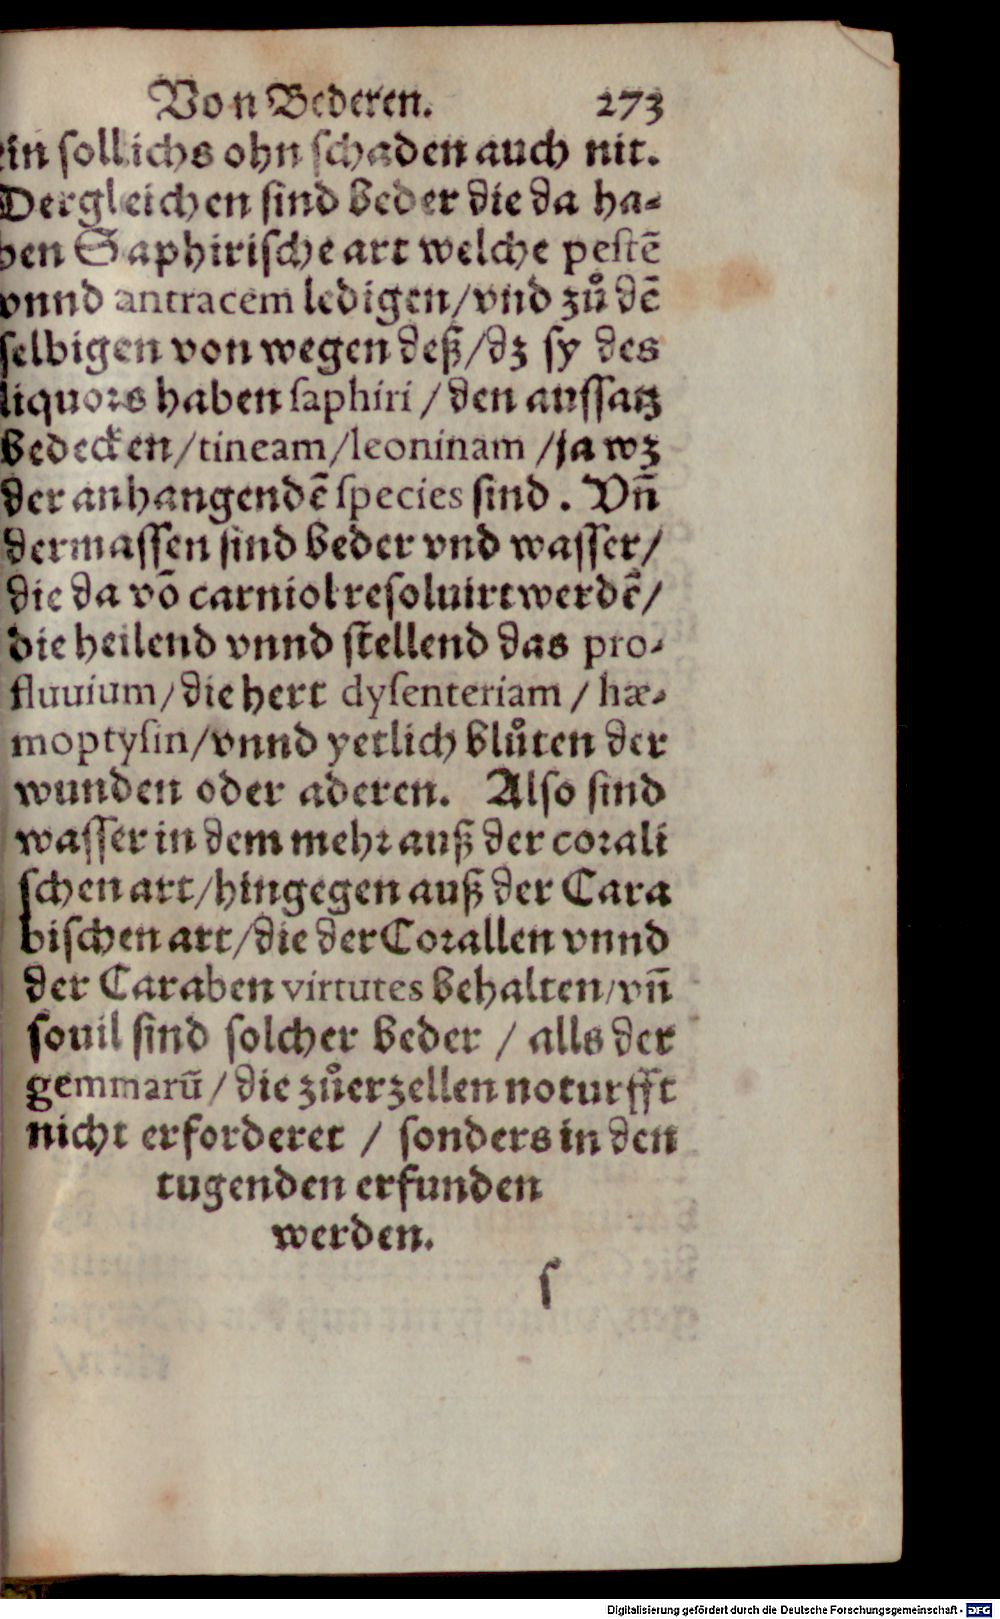 Von Bederen. 273
ein sollichs ohn schaden auch nit.
Dergleichen sind beder die da ha-
ben Saphirische art welche pestē
vnnd antracem ledigen/vnd zů dē
selbigen von wegen deß/dz sy des
liquors haben saphiri / den aussatz
bedecken/tineam/leoninam /ja wz
der anhangendē species sind. Vñ
dermassen sind beder vnd wasser/
die da võ carniol resoluirt werdē/
die heilend vnnd stellend das pro-
fluuium/die hert dysenteriam / hæ-
moptysin/vnnd yetlich blůten der
wunden oder aderen. Also sind
wasser in dem mehr auß der corali
schen art/hingegen auß der Cara
bischen art/die der Corallen vnnd
der Caraben virtutes behalten/vñ
souil sind solcher beder / alls der
gemmarū / die zůerzellen noturfft
nicht erforderet / sonders in den
tugenden erfunden
werden.
s
Digitalisierung gefördert durch die Deutsche Forschungsgemeinschaft - DFG